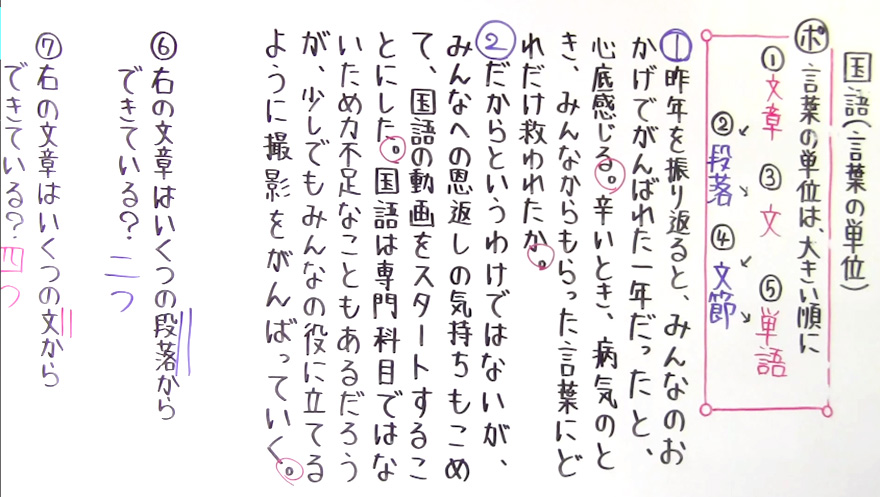 国語(言葉の単位)
ポ 言葉の単位は、大きい順に
①文章 ②段落 ③文 ④文節 ⑤単語
①昨年を振り返ると、みんなのお
かげでがんばれた一年だったと、
心底感じる。辛いとき、病気のと
き、みんなからもらった言葉にど
れだけ救われたか。
②だからというわけではないが、
みんなへの恩返しの気持ちもこめ
て、国語の動画をスタートするこ
とにした。国語は専門科目ではな
いため力不足なこともあるだろう
が、少しでもみんなの役に立てる
ように撮影をがんばっていく。
⑥右の文章はいくつの段落から
できている?二つ
⑦右の文章はいくつの文から
できている?四つ